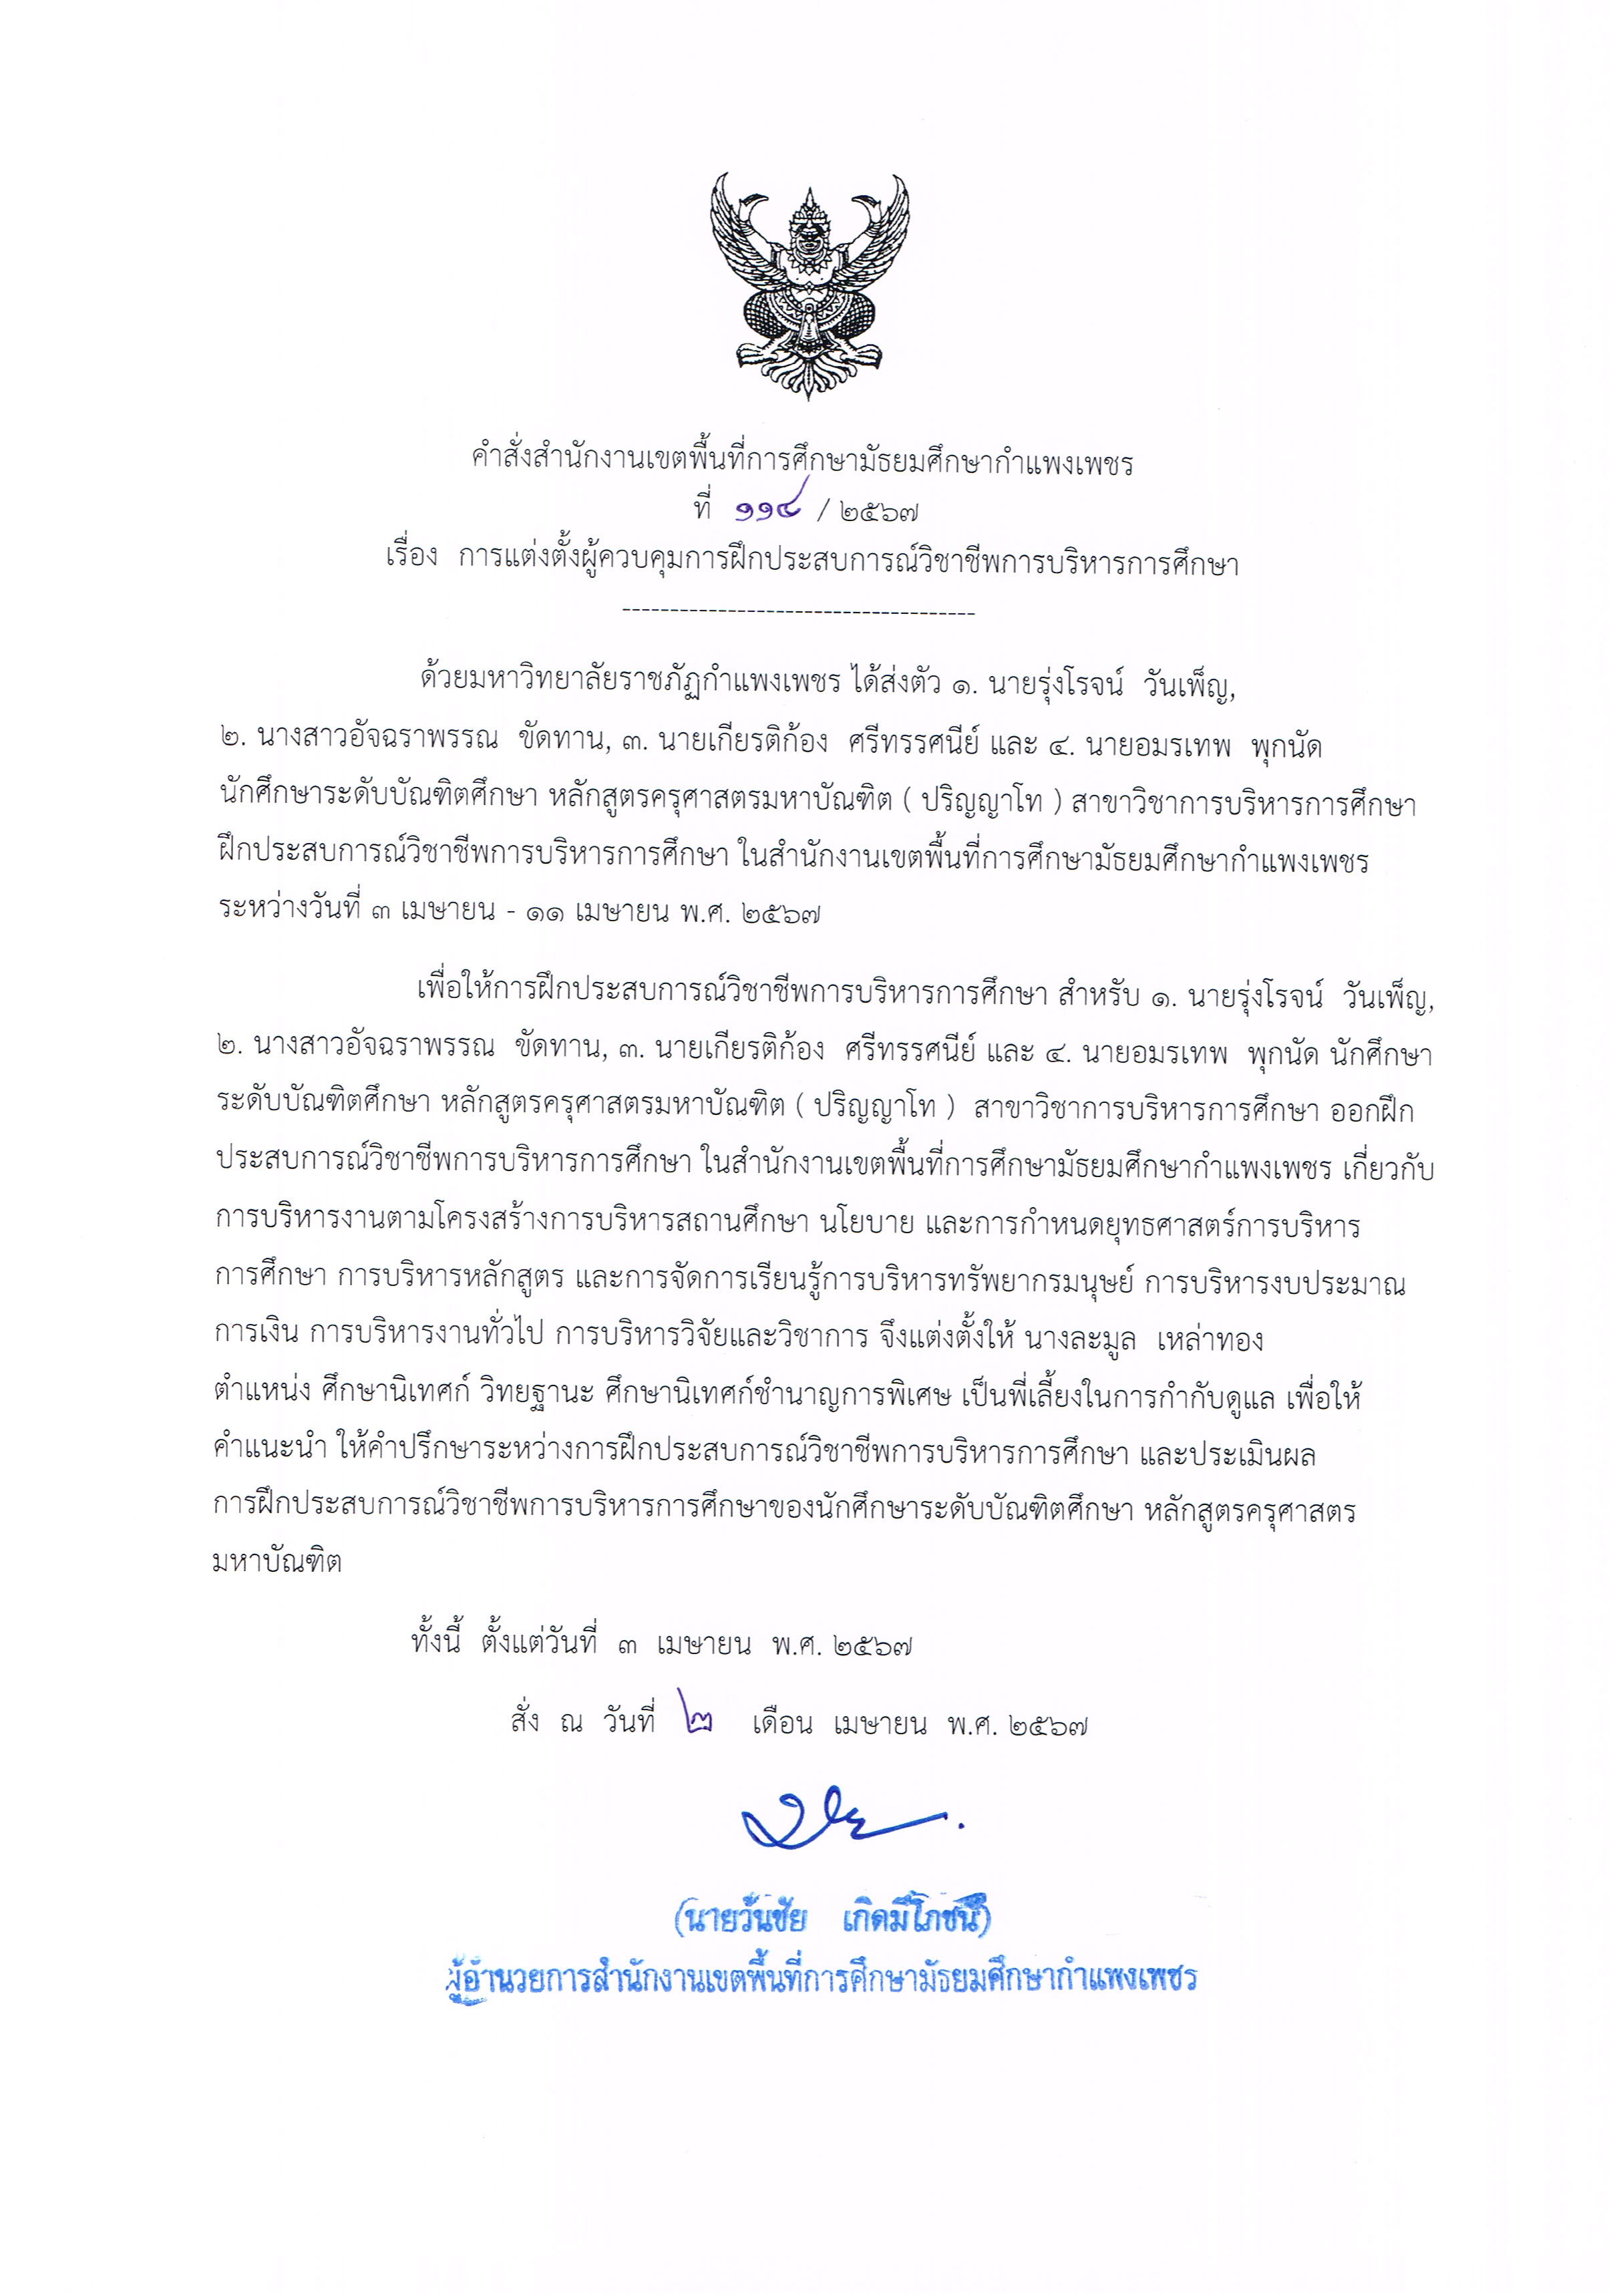 คำสั่งสำนักงานเขตพื้นที่การศึกษามัธยมศึกษากำแพงเพชร
ที่ ๑๑๔ / ๒๕๖๗
เรื่อง การแต่งตั้งผู้ควบคุมการฝึกประสบการณ์วิชาชีพการบริหารการศึกษา
-------------------------------------
ด้วยมหาวิทยาลัยราชภัฏกำแพงเพชร ได้ส่งตัว ๑. นายรุ่งโรจน์ วันเพ็ญ,
๒. นางสาวอัจฉราพรรณ ขัดทาน, ๓. นายเกียรติก้อง ศรีทรรศนีย์ และ ๔. นายอมรเทพ พุกนัด
นักศึกษาระดับบัณฑิตศึกษา หลักสูตรครุศาสตรมหาบัณฑิต ( ปริญญาโท ) สาขาวิชาการบริหารการศึกษา
ฝึกประสบการณ์วิชาชีพการบริหารการศึกษา ในสำนักงานเขตพื้นที่การศึกษามัธยมศึกษากำแพงเพชร
ระหว่างวันที่ ๓ เมษายน - ๑๑ เมษายน พ.ศ. ๒๕๖๗
เพื่อให้การฝึกประสบการณ์วิชาชีพการบริหารการศึกษา สำหรับ ๑. นายรุ่งโรจน์ วันเพ็ญ,
๒. นางสาวอัจฉราพรรณ ขัดทาน, ๓. นายเกียรติก้อง ศรีทรรศนีย์ และ ๔. นายอมรเทพ พุกนัด นักศึกษา
ระดับบัณฑิตศึกษา หลักสูตรครุศาสตรมหาบัณฑิต ( ปริญญาโท ) สาขาวิชาการบริหารการศึกษา ออกฝึก
ประสบการณ์วิชาชีพการบริหารการศึกษา ในสำนักงานเขตพื้นที่การศึกษามัธยมศึกษากำแพงเพชร เกี่ยวกับ
การบริหารงานตามโครงสร้างการบริหารสถานศึกษา นโยบาย และการกำหนดยุทธศาสตร์การบริหาร
การศึกษา การบริหารหลักสูตร และการจัดการเรียนรู้การบริหารทรัพยากรมนุษย์ การบริหารงบประมาณ
การเงิน การบริหารงานทั่วไป การบริหารวิจัยและวิชาการ จึงแต่งตั้งให้ นางละมูล เหล่าทอง
ตำแหน่ง ศึกษานิเทศก์ วิทยฐานะ ศึกษานิเทศก์ชำนาญการพิเศษ เป็นพี่เลี้ยงในการกำกับดูแล เพื่อให้
คำแนะนำ ให้คำปรึกษาระหว่างการฝึกประสบการณ์วิชาชีพการบริหารการศึกษา และประเมินผล
การฝึกประสบการณ์วิชาชีพการบริหารการศึกษาของนักศึกษาระดับบัณฑิตศึกษา หลักสูตรครุศาสตร
มหาบัณฑิต
ทั้งนี้ ตั้งแต่วันที่ ๓ เมษายน พ.ศ. ๒๕๖๗
สั่ง ณ วันที่ ๒ เดือน เมษายน พ.ศ. ๒๕๖๗
(นายวันชัย เกิดมีโภชน์)
ผู้อำนวยการสำนักงานเขตพื้นที่การศึกษามัธยมศึกษากำแพงเพชร